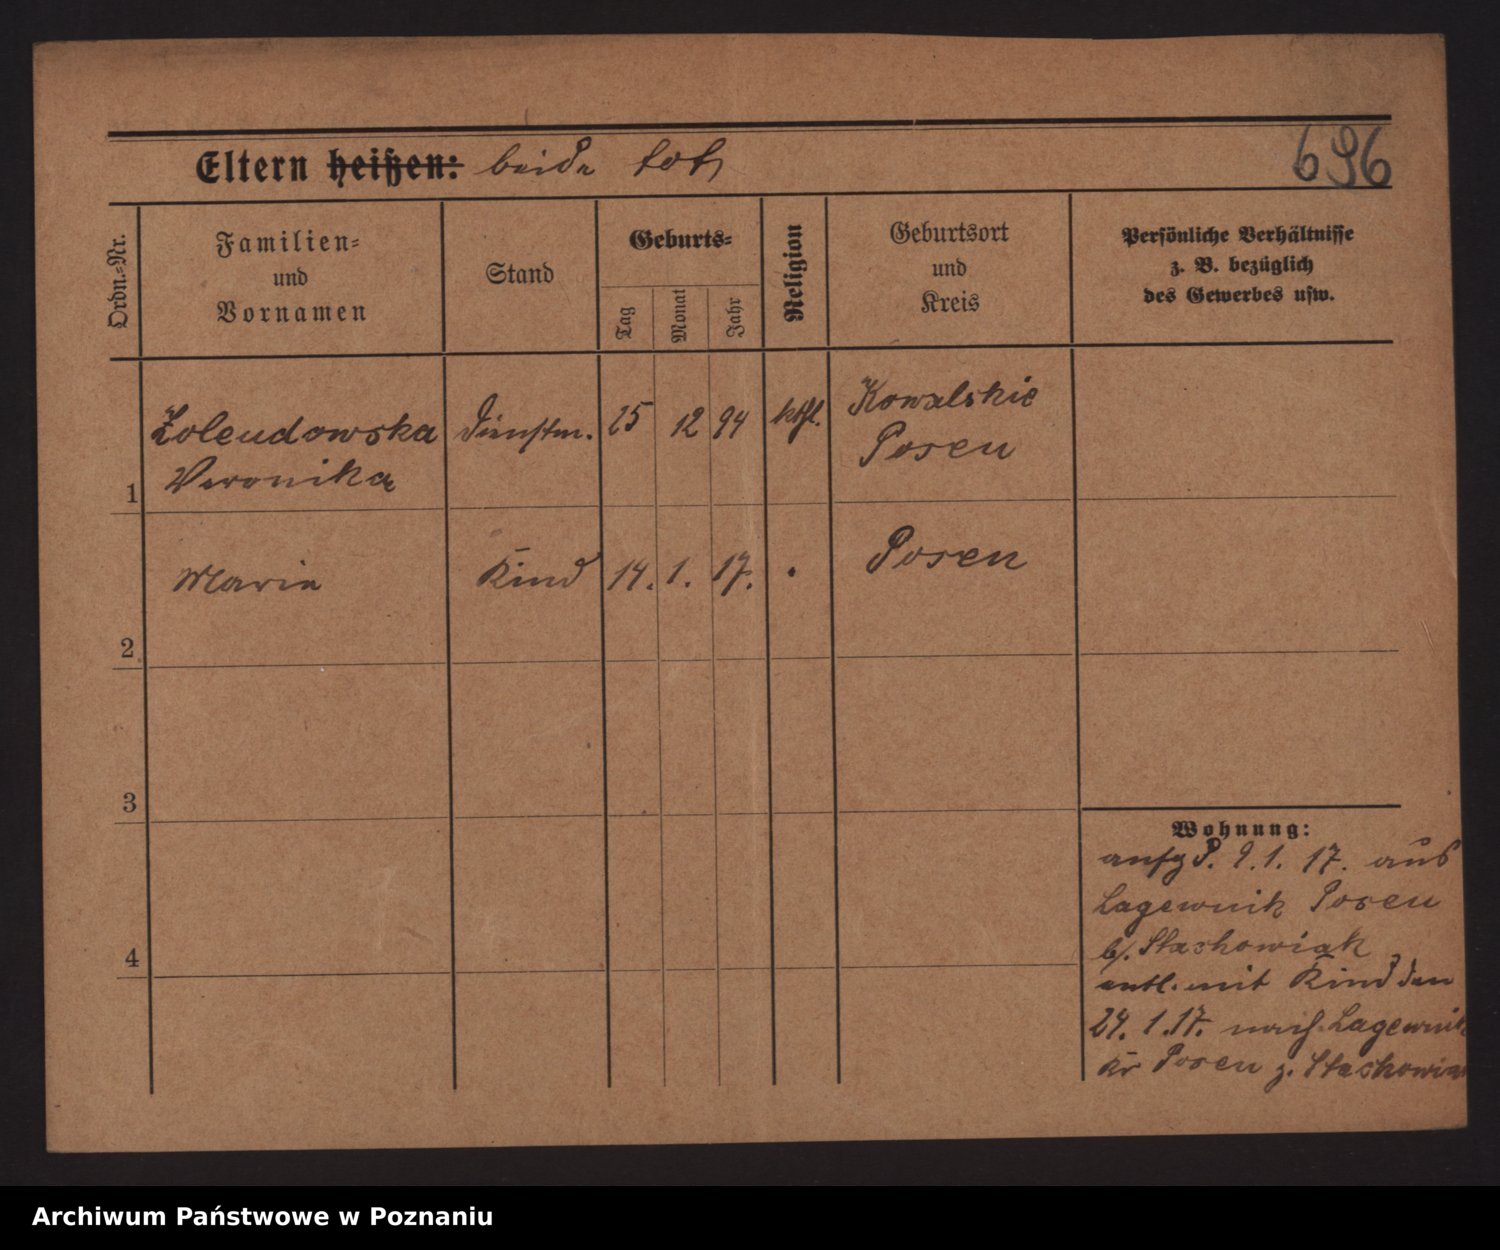 696
Eltern heißen: beide tot
Ordn.-Nr.
Familien-
und
Vornamen
Stand
Geburts-
Tag
Monat
Jahr
Religion
Geburtsort
und
Kreis
Persönliche Verhältnisse
z. B. bezüglich
des Gewerbes usw.
1
Zolendowska
Veronika
Dienstm.
25
12
94
kthl.
Kowalskie
Posen
2
Maria
Kind
14.
1.
17.
Posen
3
4
Wohnung:
aufg P. 9.1.17. aus
Lagewnik Posen
b/. Stachowiak
entl. mit Kind den
24.1.17. nach Lagewnik
Kr Posen z. Stachowiak
Archiwum Państwowe w Poznaniu